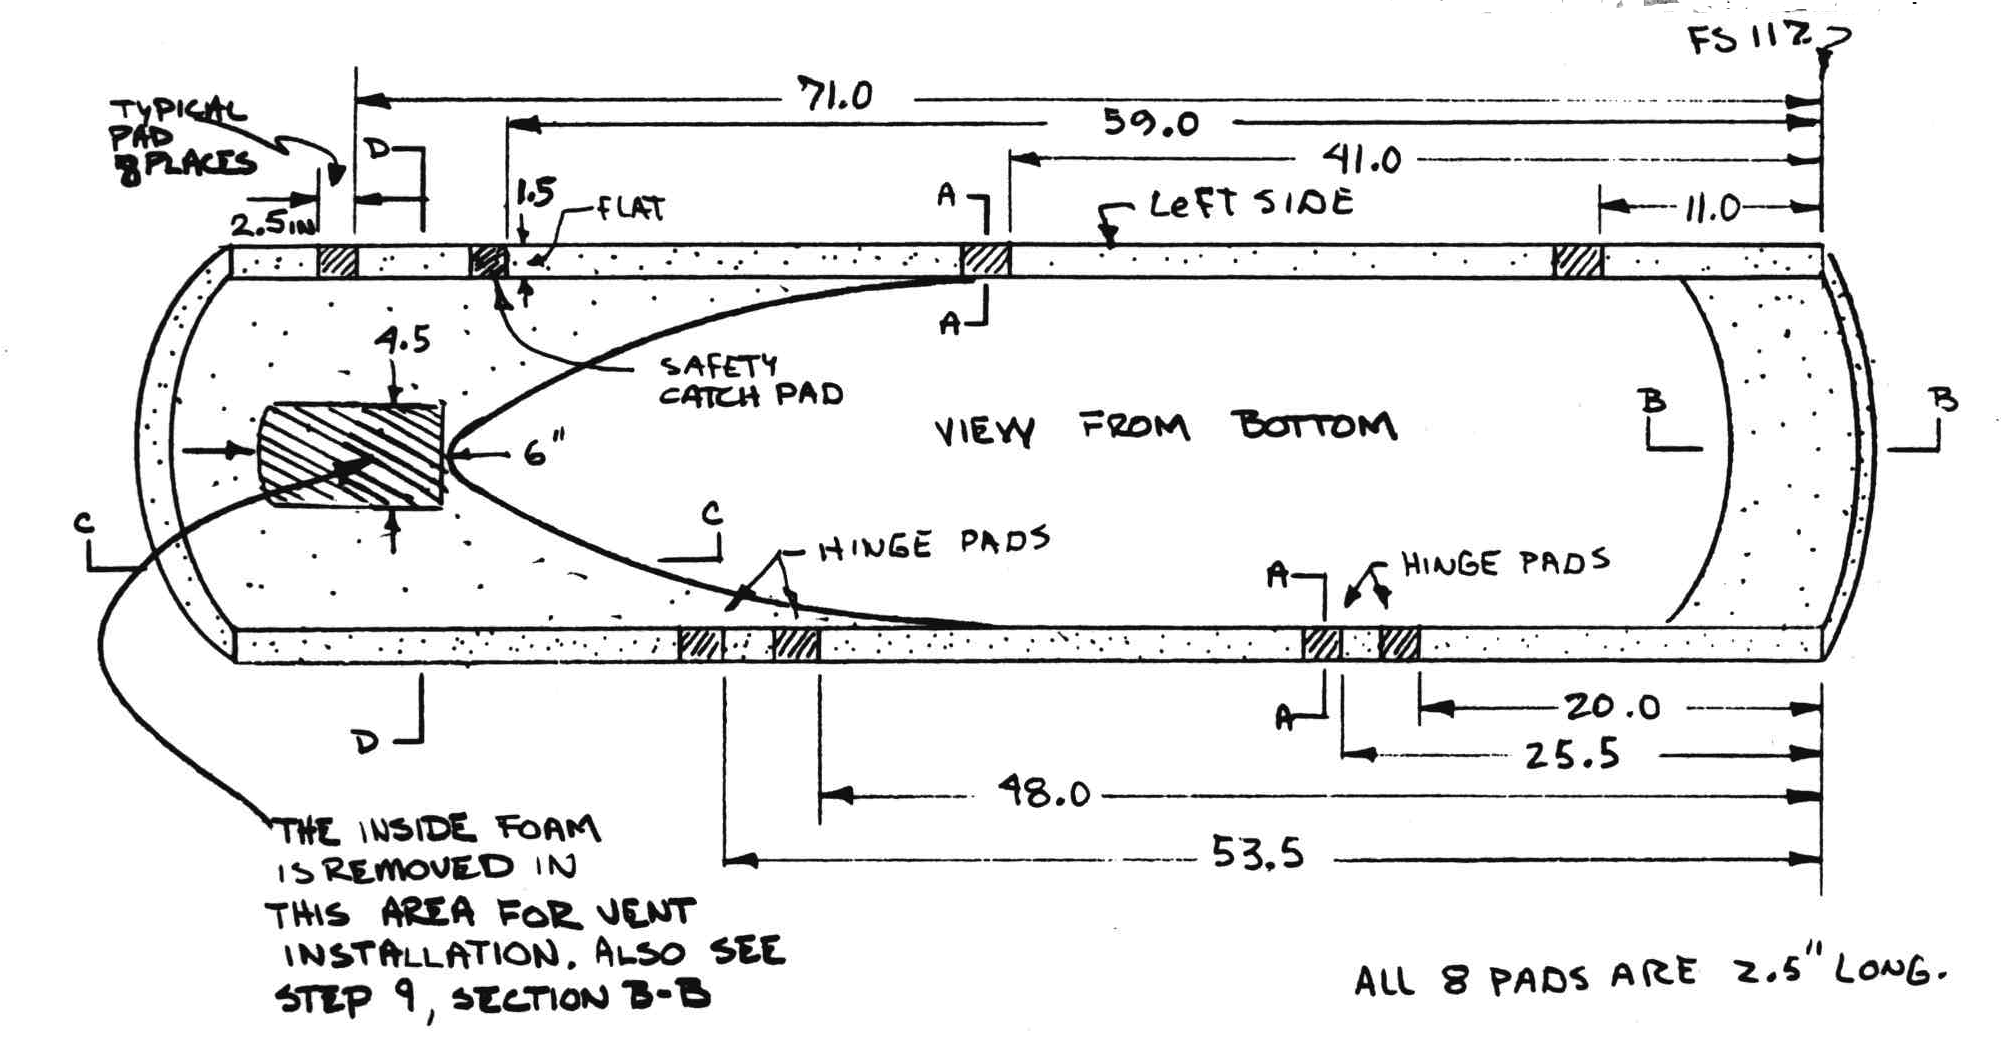 FS 112
71.0
59.0
41.0
11.0
TYPICAL
PAD
8 PLACES
2.5 IN
D
1.5
FLAT
A
LeFT SIDE
A
4.5
SAFETY
CATCH PAD
VIEW FROM BOTTOM
B
B
6"
C
C
HINGE PADS
A
HINGE PADS
D
A
20.0
25.5
48.0
53.5
THE INSIDE FOAM
IS REMOVED IN
THIS AREA FOR VENT
INSTALLATION. ALSO SEE
STEP 9, SECTION B-B
ALL 8 PADS ARE 2.5" LONG.